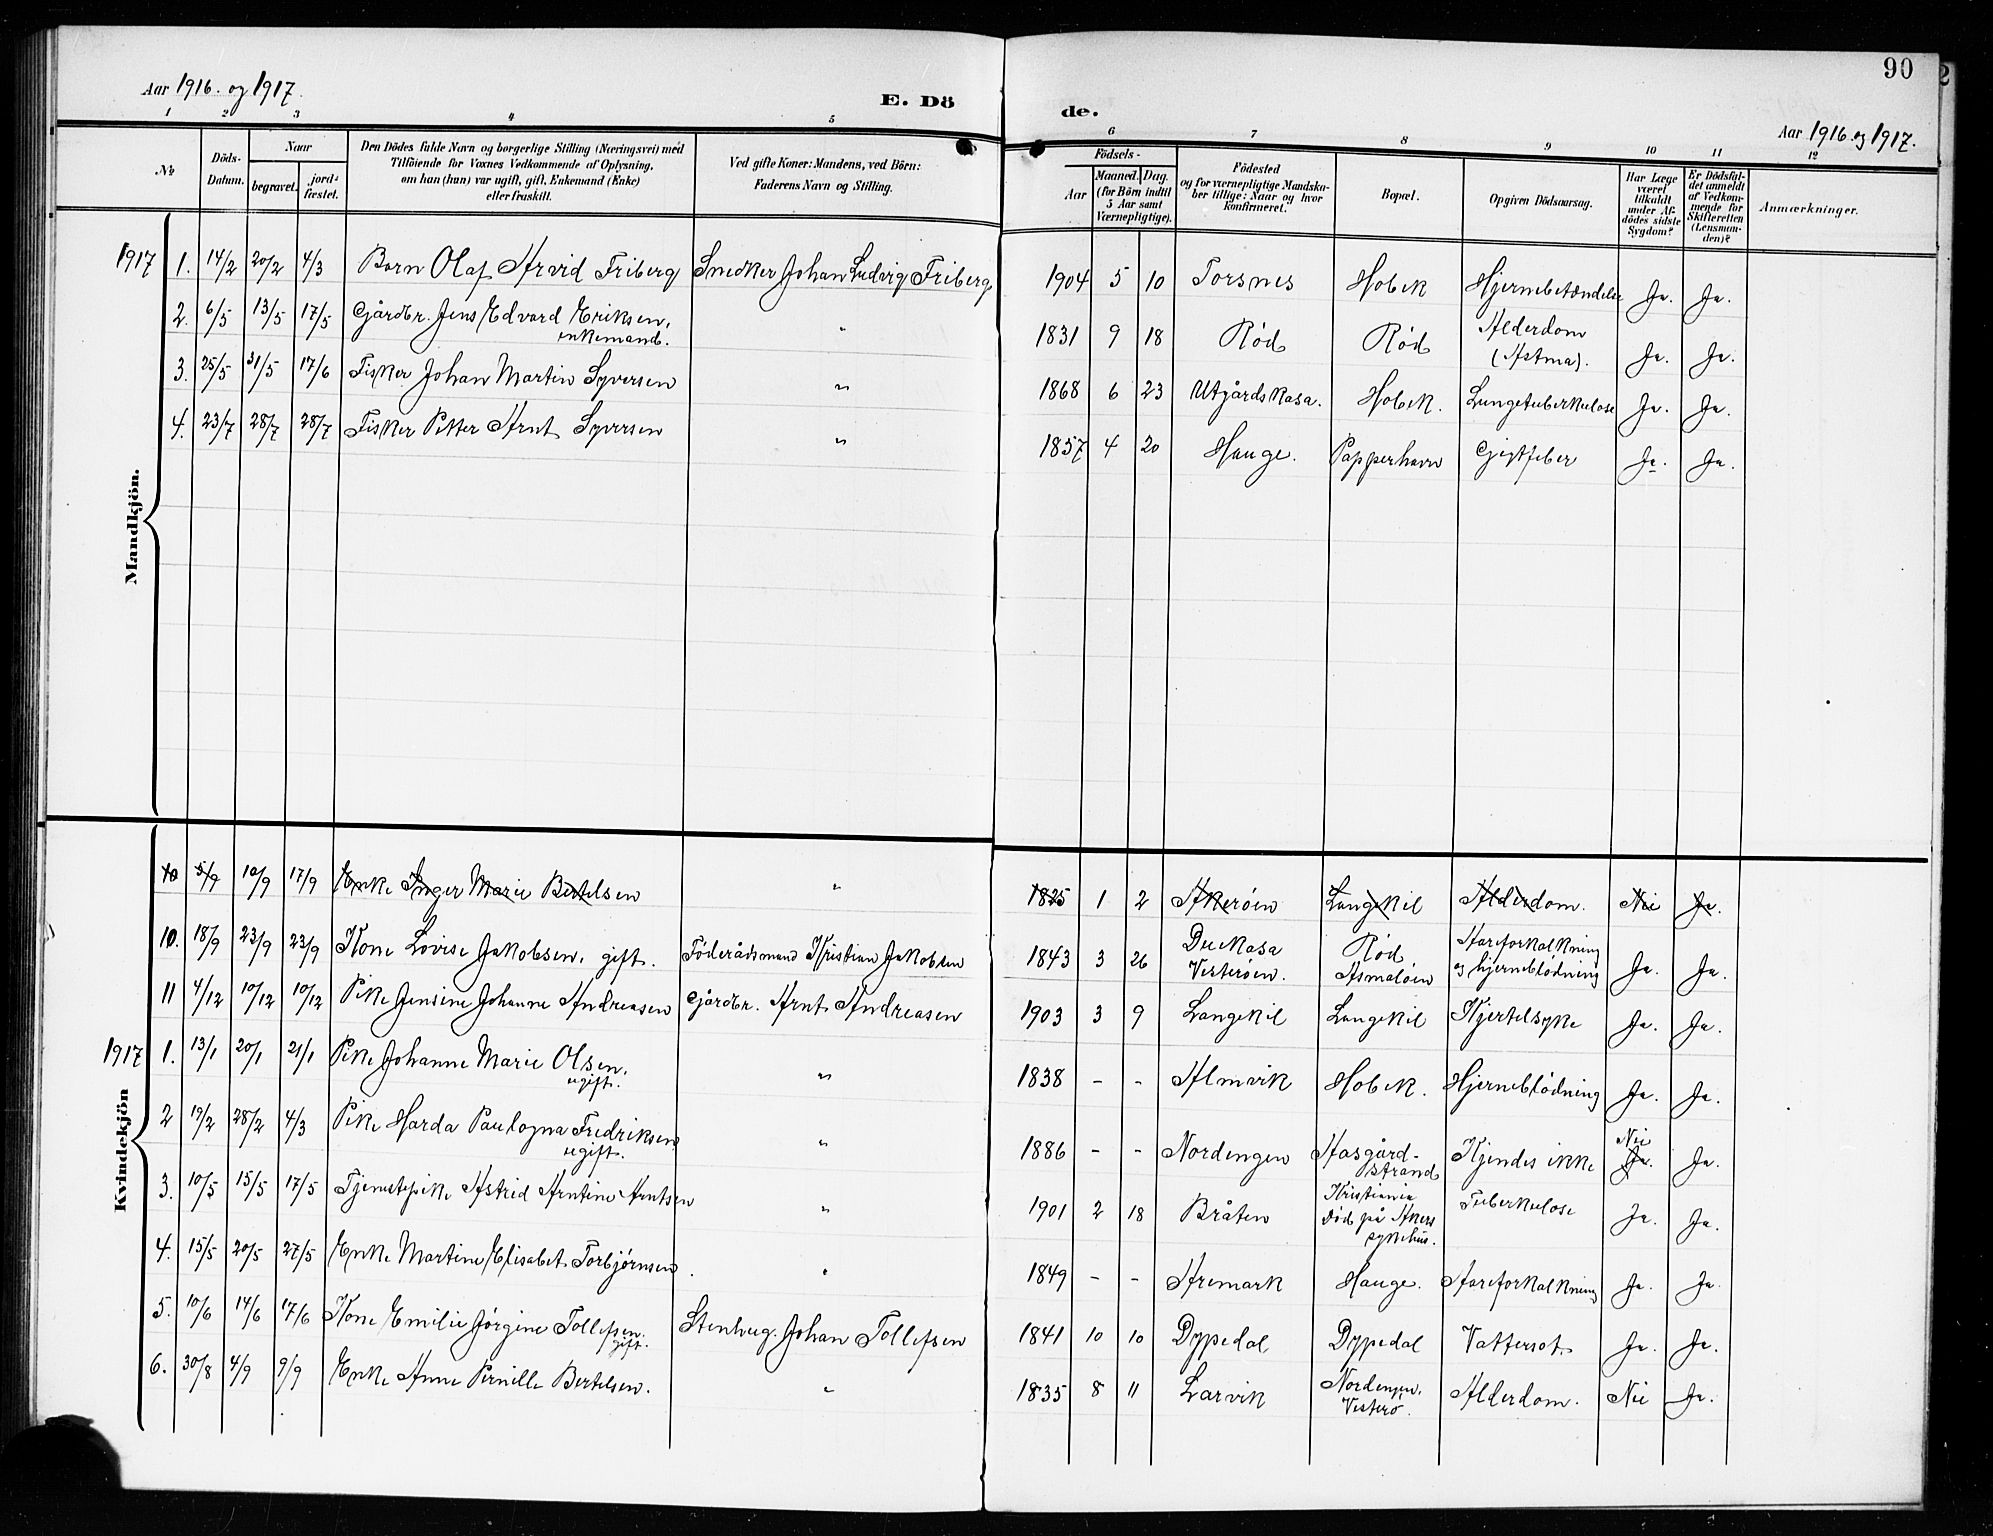 90
Aar 1916. og 1917.
E. Dö
de.
Aar 1916 og 1917.
1 2 3 4 5 6 7 8 9 10 11 12
No.
Döds-Datum.
Naar
begravet.
jordfæstet.
Den Dödes fulde Navn og borgerlige Stilling (Næringsvei) med
Tilföiende for Voxnes Vedkommende af Oplysning,
om han (hun) var ugift, gift, Enkemand (Enke)
eller fraskilt.
Ved gifte Koner: Mandens, ved Börn:
Faderens Navn og Stilling.
Födsels-
Aar
Maaned. Dag.
(for Börn indtil
5 Aar samt
Værnepligtige).
Födested
og for værnepligtige Mandska-
ber tillige: Naar og hvor
konfirmeret.
Bopæl.
Opgiven Dödsaarsag.
Har Læge
været
tilkaldt
under Af-
dödes sidste
Sygdom?
Er Dödsfal-
det anmeldt
af Vedkom-
mende for
Skifteretten
(Lensman-
den)?
Anmærkninger.
Mandkjön.
1917 1. 14/2 20/2 4/3 Barn Olaf Arvid Friberg Snedker Johan Ludvig Friberg 1904 5 10 Torsnes Hobek Hjernebetændelse Ja. Ja.
2. 6/5 13/5 17/5 Gårdbr. Jens Edvard Eriksen, " 1831 9 18 Rød Rød Alderdom
enkemand. (Astma). Ja. Ja.
3. 25/5 31/5 17/6 Fisker Johan Martin Syversen " 1868 6 23 Utgårdskasa. Hobek. Lungetuberkulose Ja. Ja.
4. 23/7 28/7 28/7 Fisker Petter Arnt Syversen " 1857 4 20 Hauge. Papperhavn Gigtfeber Ja. Ja.
Kvindekjön
10 5/9 10/9 17/9 Enke Inger Marie Bertelsen " 1825 1 2 Akerøen Langekil Alderdom. Nei Ja.
10. 18/9 23/9 23/9 Kone Lovise Jakobsen, gift. Föderådsmand Kristian Jakobsen 1843 3 26 Duekasa Rød Aareforkalkning
Vesterøen. Asmaløen og hjerneblödning Ja. Ja.
11 4/12 10/12 10/12 Pike Jensine Johanne Andreasen Gårdbr. Arnt Andreasen 1903 3 9 Langekil Langekil Kjertelsyke Ja. Ja.
1917 1. 13/1 20/1 21/1 Pike Johanne Marie Olsen, " 1838 - - Almvik Hobek. Hjerneblödning Ja. Ja.
ugift.
2 19/2 28/2 4/3 Pike Harda Paulogna Fredriksen " 1886 - - Nordengen Aasgård-
strand Kjendes ikke Nei Ja. Ja.
ugift.
3. 10/5 15/5 17/5 Tjenestepike Astrid Arntine Arntsen " 1901 2 18 Bråten Kristiania
död på Akers
sykehus. Tuberkulose Ja. Ja.
4. 15/5 20/5 27/5 Enke Martine Elisabet Torbjørnsen. " 1849 - - Aremark Hauge. Aareforkalkning Ja. Ja.
5. 10/6 14/6 17/6 Kone Emilie Jørgine Tollefsen. Stenhug. Johan Tollefsen 1841 10 10 Dypedal Dypedal Vattersot. Ja. Ja.
gift.
6. 30/8 4/9 9/9 Enke Anne Pernille Bertelsen. " 1835 8 11 Larvik Nordengen,
Vesterø. Alderdom. Nei Ja.